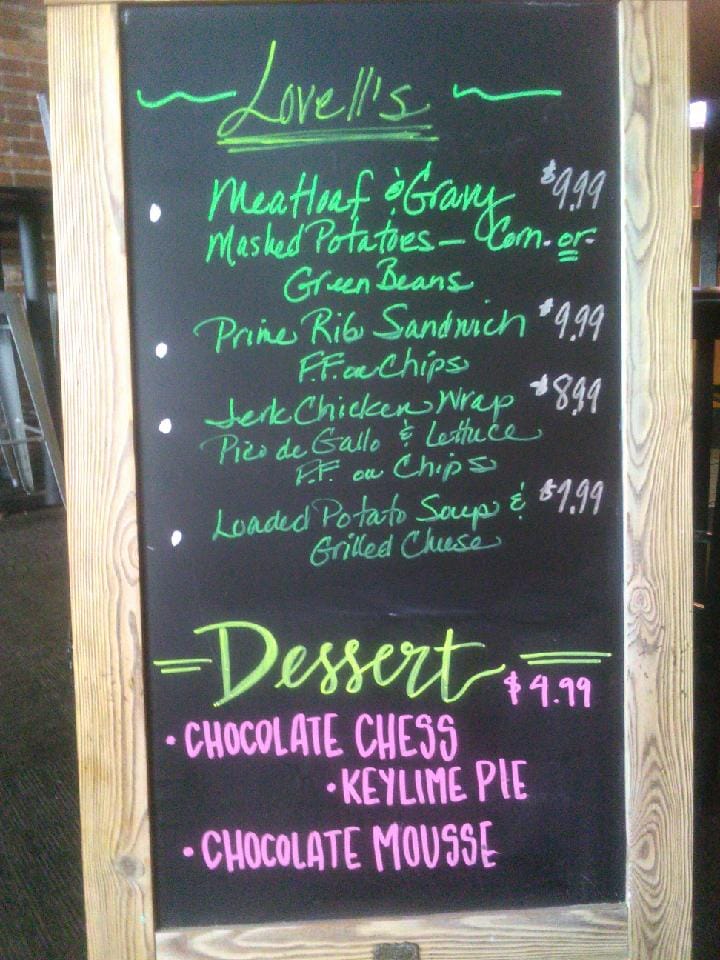 Lovell's
Meatloaf & Gravy $9.99
Mashed Potatoes - Corn - or -
Green Beans
Prime Rib Sandwich $9.99
F.F. or Chips
Jerk Chicken Wrap $8.99
Pico de Gallo & Lettuce
F.F. or Chips
Loaded Potato Soup & $7.99
Grilled Cheese
Dessert
$4.99
• CHOCOLATE CHESS
• KEYLIME PIE
• CHOCOLATE MOUSSE